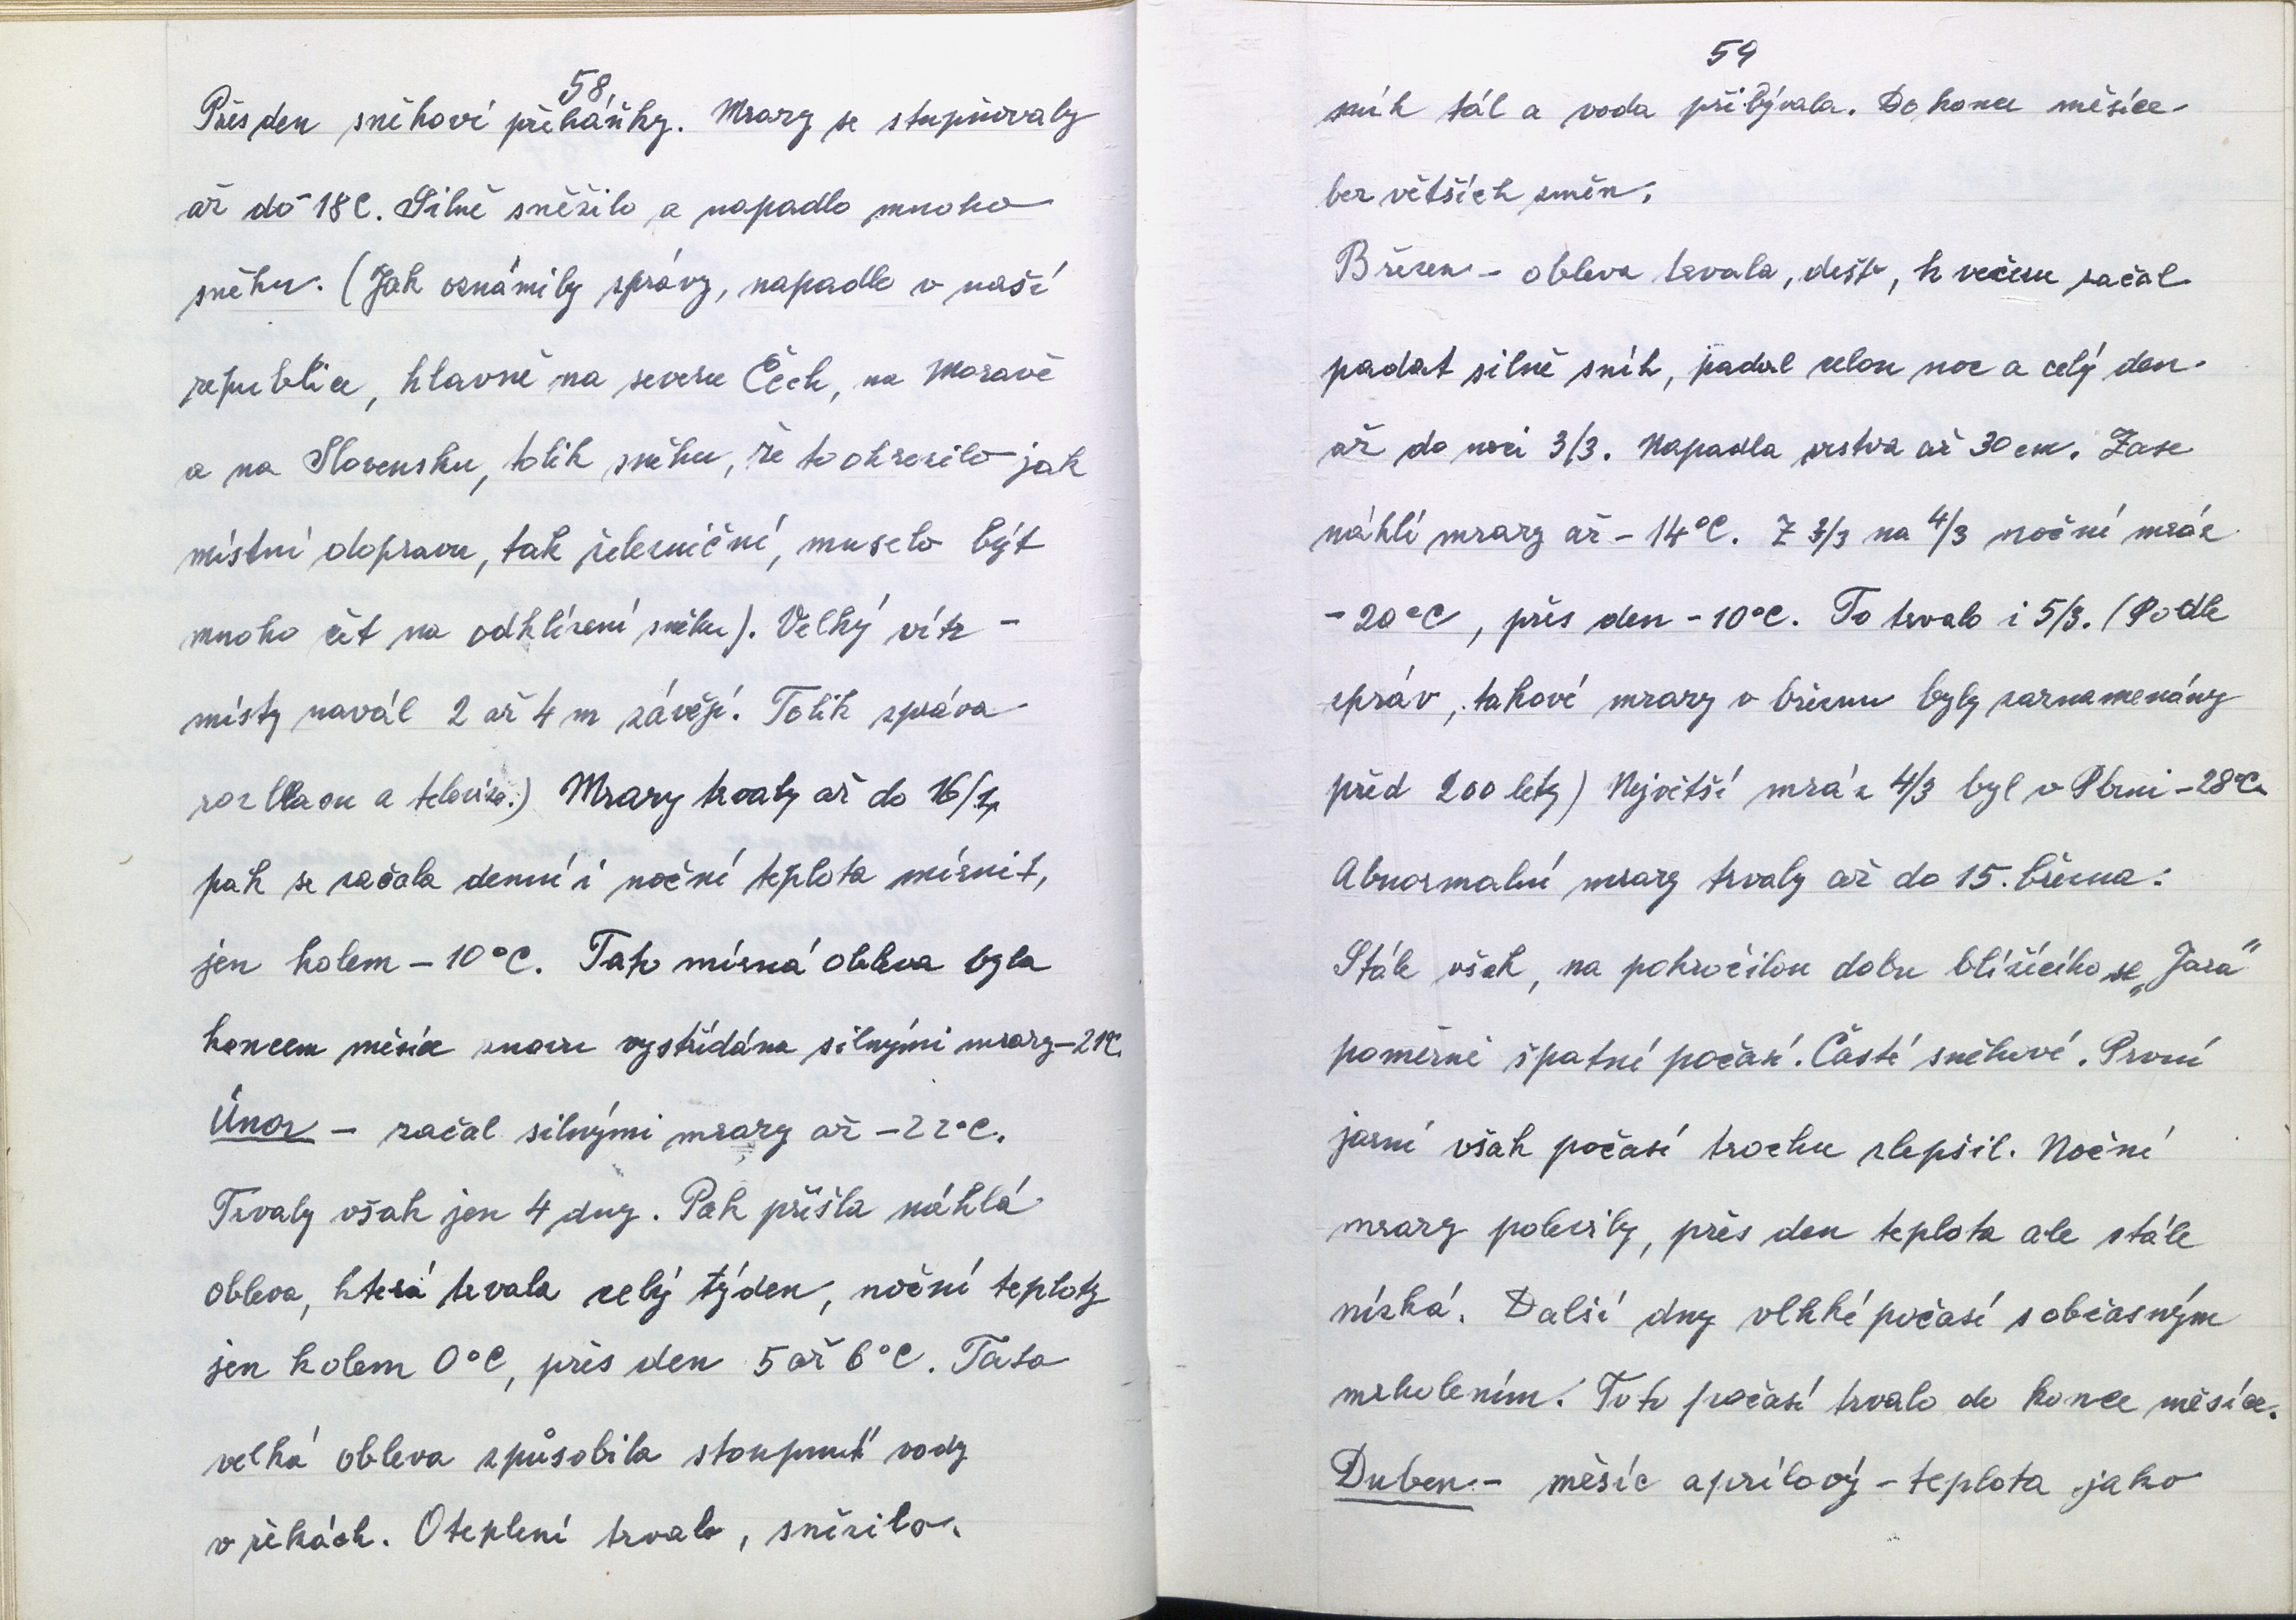 58,
Přes den sněhové přeháňky. Mrazy se stupňovaly
až do -18 C. Silně sněžilo a napadlo mnoho
sněhu. (Jak oznámily zprávy, napadlo v naší
republice, hlavně na severu Čech, na Moravě
a na Slovensku, tolik sněhu, že to ohrozilo jak
místní dopravu, tak železniční, muselo být
mnoho čet na odklízení sněhu). Velký vítr -
místy navál 2 až 4 m závějí. Tolik zpráva
rozhlasu a televize.) Mrazy trvaly až do 16/1,
pak se začala denní i noční teplota mírnit,
jen kolem - 10°C. Tato mírná obleva byla
koncem měsíce znovu vystřídána silnými mrazy -21°C.
Únor - začal silnými mrazy až -22°C.
Trvaly však jen 4 dny. Pak přišla náhlá
obleva, která trvala celý týden, noční teploty
jen kolem 0°C, přes den 5 až 6°C. Tato
velká obleva způsobila stoupnutí vody
v řekách. Oteplení trvalo, sněžilo.
59
sníh tál a voda přibývala. Do konce měsíce
bez větších změn.
Březen - obleva trvala, dešť, k večeru začal
padat silně sníh, padal celou noc a celý den
až do noci 3/3. Napadla vrstva až 30 cm. Zase
náhlé mrazy až - 14°C. Z 3/3 na 4/3 noční mráz
- 20°C, přes den - 10°C. To trvalo i 5/3. (Podle
zpráv, takové mrazy v březnu byly zaznamenány
před 200 lety) Největší mráz 4/3 byl v Plzni - 28°C.
Abnormalní mrazy trvaly až do 15. března:
Stále však, na pokročilou dobu blížícího se „Jara"
poměrně špatné počasí. Časté sněhové. První
jarní však počasí trochu zlepšil. Noční
mrazy polevily, přes den teplota ale stále
nízká. Další dny vlhké počasí s občasným
mrholením. Toto počasí trvalo do konce měsíce.
Duben - měsíc aprílový - teplota jako